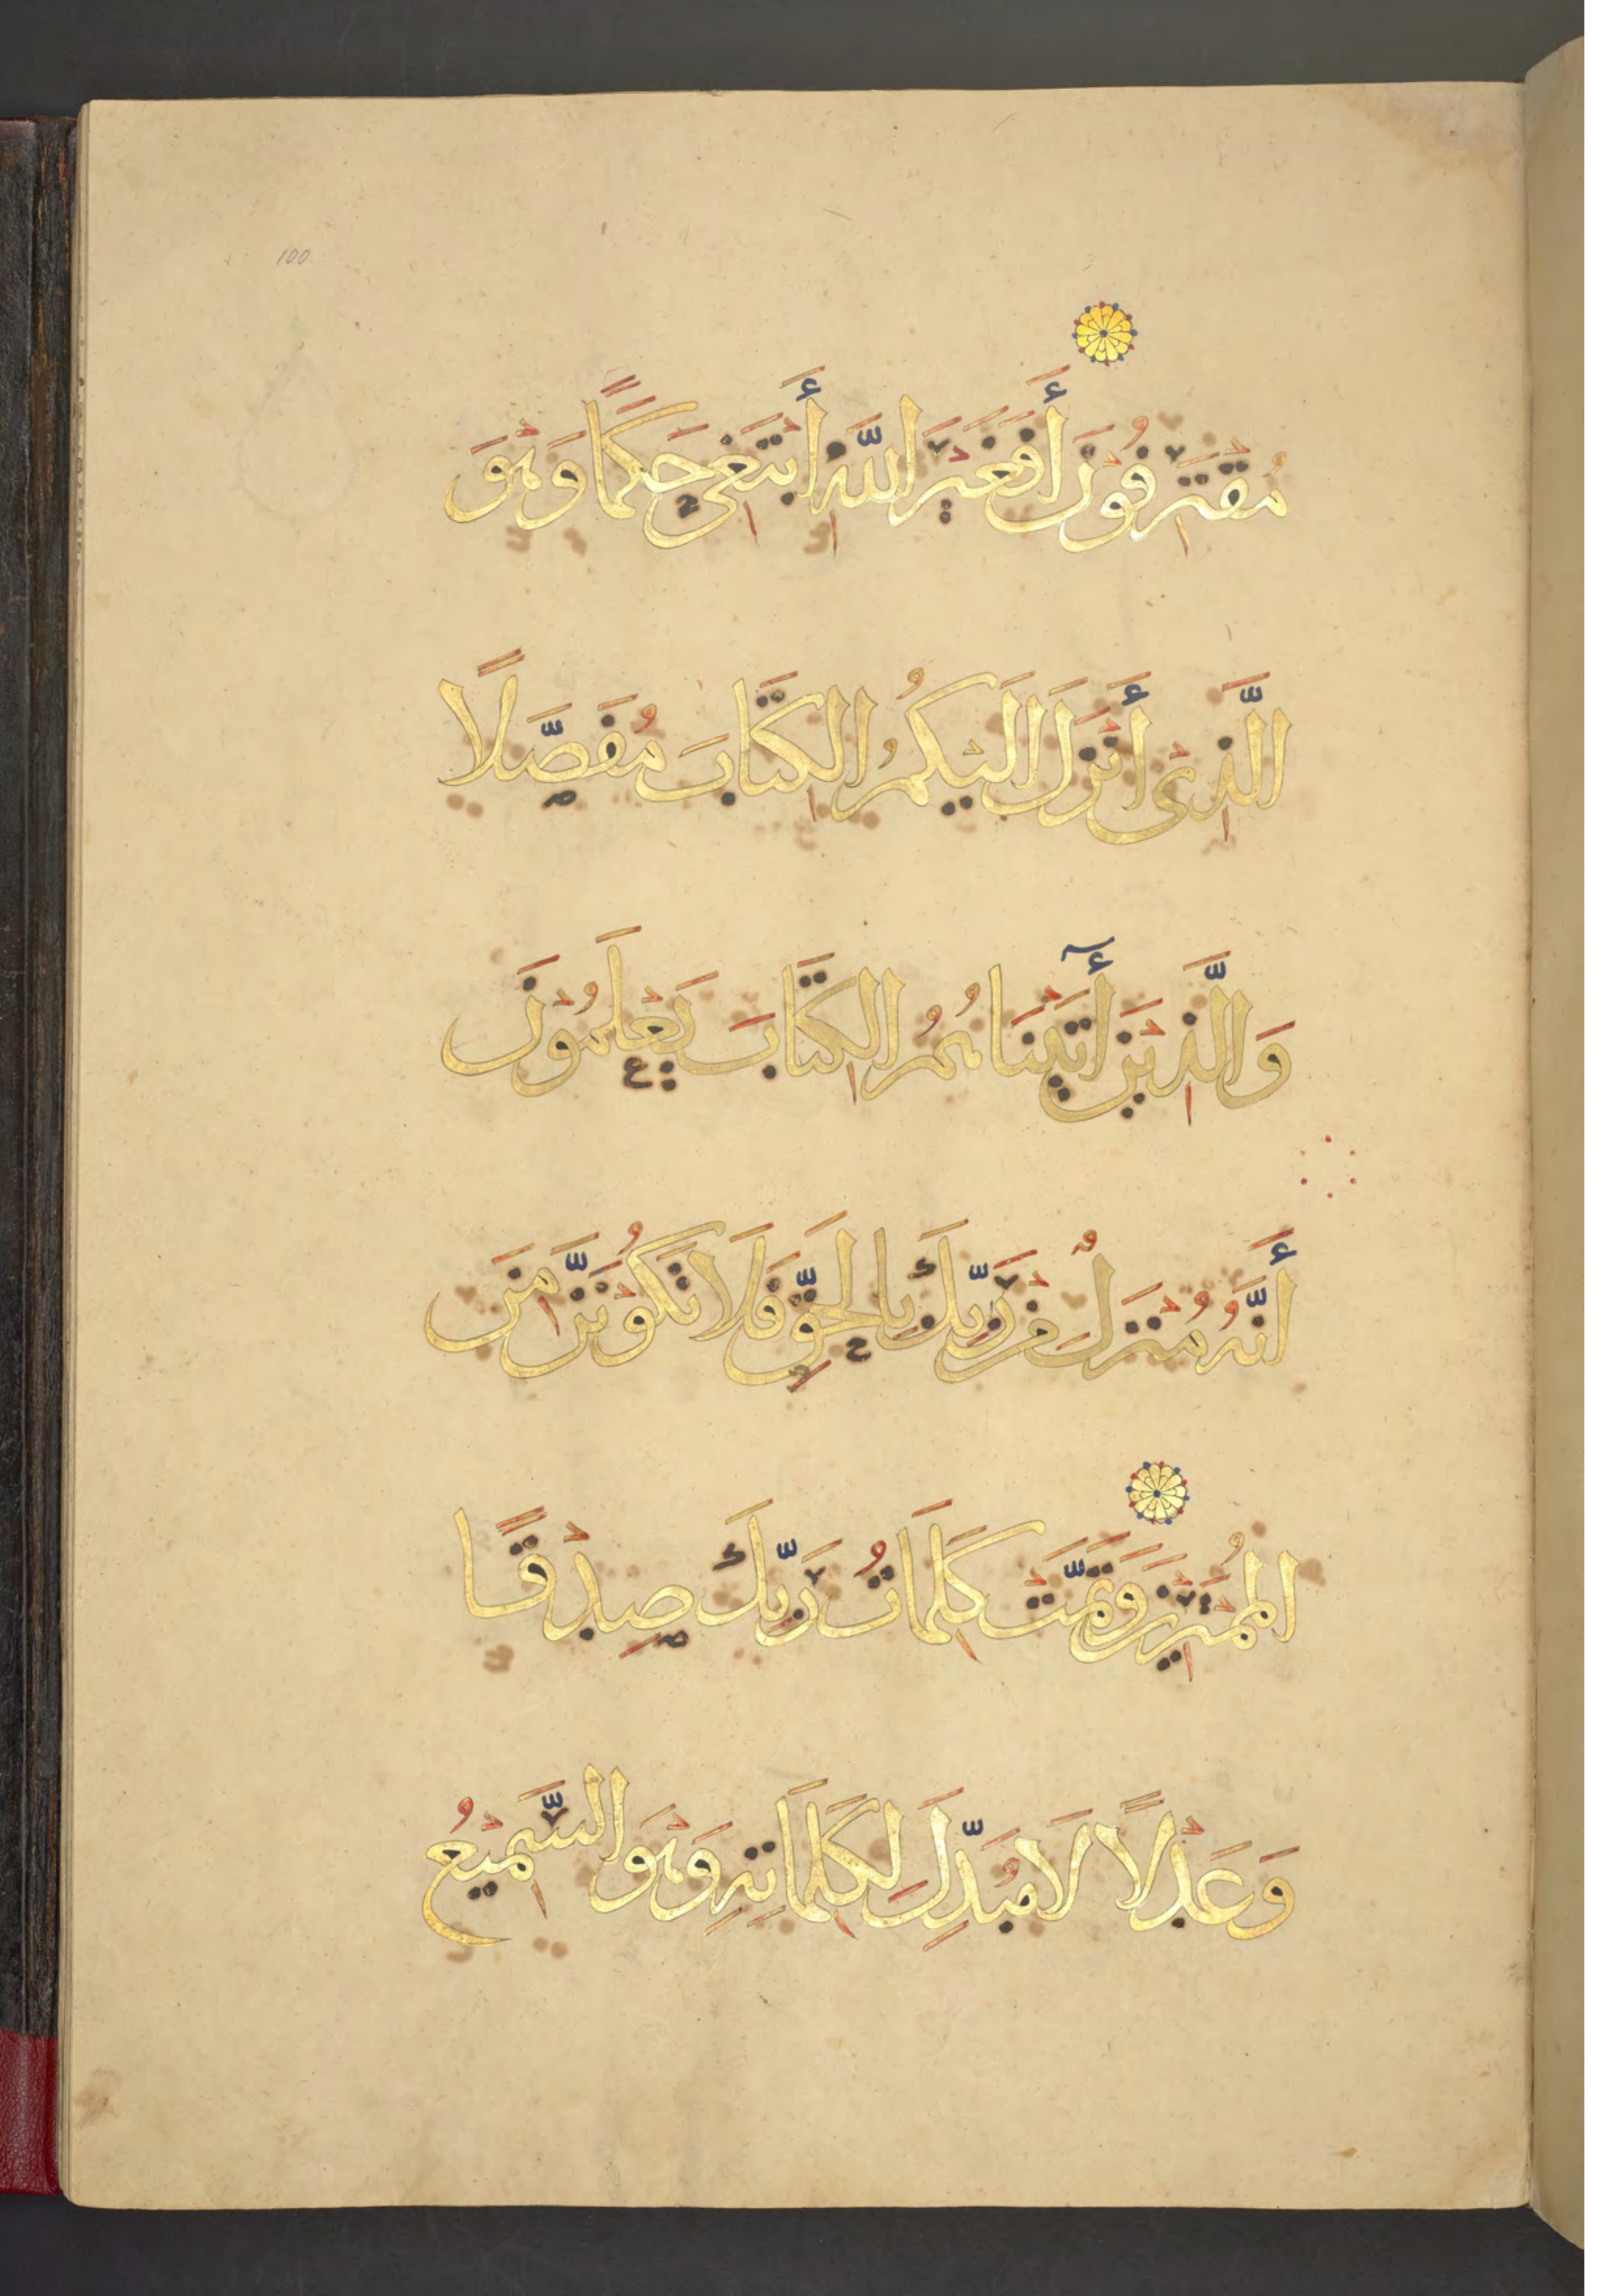 100
مُقْتَرِفُوْنَ أَفَغَيْرَ اللّهِ أَبْتَغِي حَكَمًا وَهْوَ
الَّذِيْ أَنْزَلَ اِلَيْكُمُ الْكِتَابَ مُفَصَّلًا
وَالَّذِيْنَ أٓتَيْنَاهُمُ الْكِتَابَ يَعْلَمُوْنَ
أَنَّهُ مُنْزَلٌ مِنْ رَّبِّكَ بِالْحَقِّ فَلَا تَكُوْنَنَّ مِنَ
الْمُمْتَرِيْنَ وَتَمَّتْ كَلِمَاتُ رَبِّكَ صِدْقًا
وَعَدْلًا لَا مُبَدِّلَ لِكَلِمَاتِهِ وَهْوَ السَّمِيْعُ